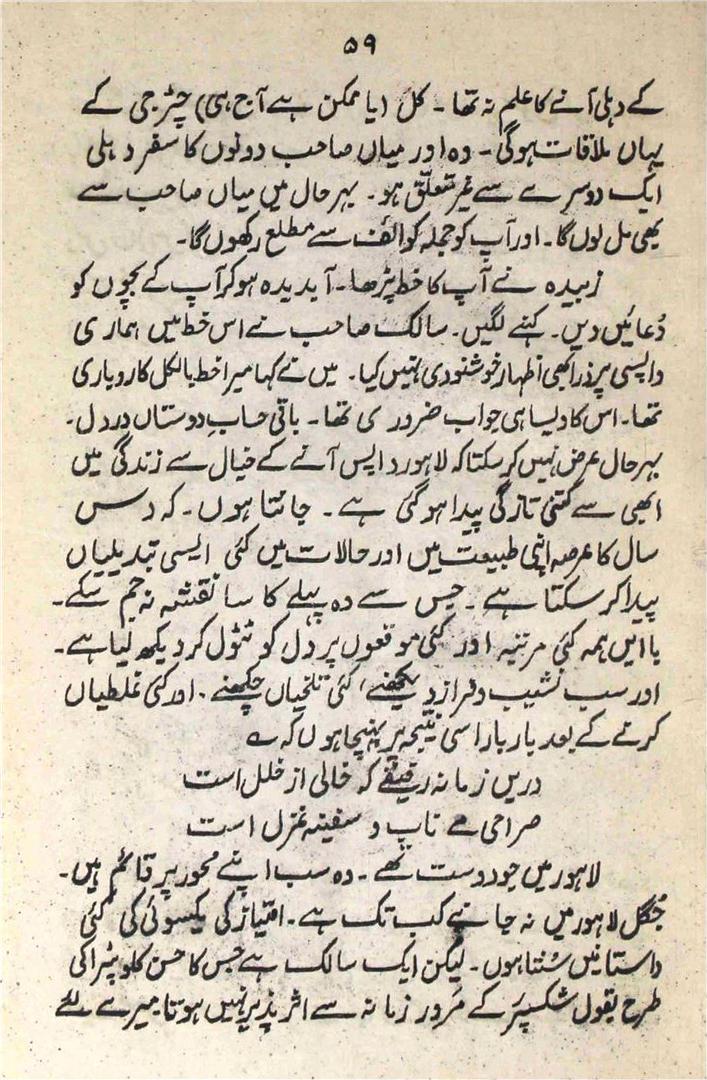 ۵۹
کے دہلی آنے کا علم نہ تھا۔ کل (یا ممکن ہے آج ہی) چٹرجی کے
یہاں ملاقات ہوگی۔ وہ اور میاں صاحب دونوں کا سفر دہلی
ایک دوسرے سے غیر متعلّق ہو۔ بہر حال میں میاں صاحب سے
بھی مل لوں گا۔ اور آپ کو جملہ کوائف سے مطلع رکھوں گا۔
زبیدہ نے آپ کا خط پڑھا۔ آبدیدہ ہو کر آپ کے بچوں کو
دُعائیں دیں۔ کہنے لگیں۔ سالک صاحب نے اس خط میں ہماری
واپسی پر ذرا بھی اظہار خوشنودی نہیں کیا۔ میں نے کہا میرا خط بالکل کاروباری
تھا۔ اس کا ویسا ہی جواب ضروری تھا۔ باقی حساب دوستاں در دل۔
بہر حال عرض نہیں کر سکتا کہ لاہور واپس آنے کے خیال سے زندگی میں
ابھی سے کتنی تازگی پیدا ہو گئی ہے۔ جانتا ہوں۔ کہ دس
سال کا عرصہ اپنی طبیعت میں اور حالات میں کئی ایسی تبدیلیاں
پیدا کر سکتا ہے۔ جس سے وہ پہلے کا سا نقشہ نہ جم سکے۔
با ایں ہمہ کئی مرتبہ اور کئی موقعوں پر دل کو ٹٹول کر دیکھ لیا ہے۔
اور سب نشیب و فراز دیکھنے، کئی تلخیاں چکھنے۔ اور کئی غلطیاں
کرنے کے بعد بار بار اسی نتیجہ پر پہنچا ہوں کہ ؎
دریں زمانہ رفیقے کہ خالی از خلل است
صراحی مے ناب و سفینہ غزل است
لاہور میں جو دوست تھے۔ وہ سب اپنے محور پر قائم ہیں۔
جُگل لاہور میں نہ جانے کب تک ہے۔ امتیاز کی یکسوئی کی کئی
داستانیں سُنتا ہوں۔ لیکن ایک سالک ہے جس کا حسن کلوپٹرا کی
طرح بقول شکسپئر کے مَرور زمانہ سے اثر پذیر نہیں ہوتا۔ میرے لئے